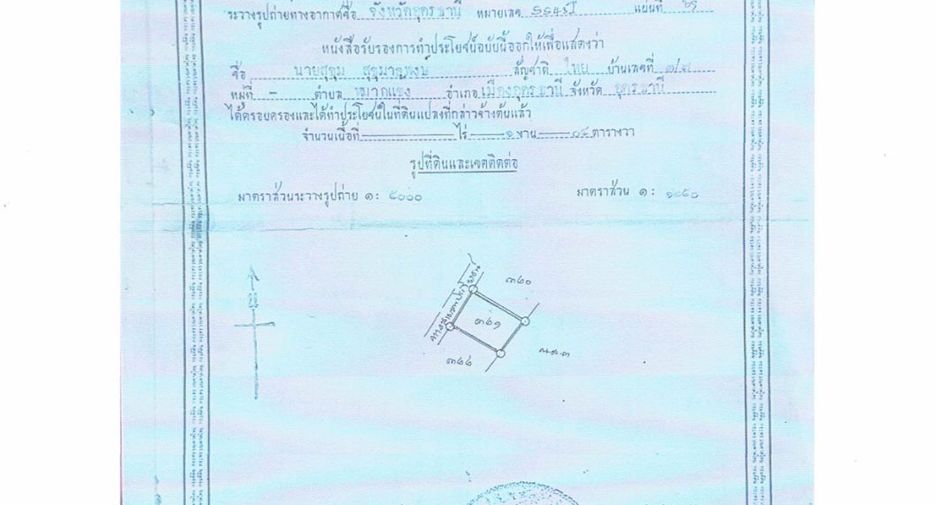 ระวางรูปถ่ายทางอากาศชื่อ จังหวัดอุดรธานี หมายเลข แผ่นที่
หนังสือรับรองการทำประโยชน์ฉบับนี้ออกให้เพื่อแสดงว่า
ชื่อ นายสุขุม สัญชาติ ไทย บ้านเลขที่
หมู่ที่ - ตำบล หมากแข้ง อำเภอ เมืองอุดรธานี จังหวัด อุดรธานี
ได้ครอบครองและได้ทำประโยชน์ในที่ดินแปลงที่กล่าวข้างต้นแล้ว
จำนวนเนื้อที่ ไร่ ๑ งาน ตารางวา
รูปที่ดินและเขตติดต่อ
มาตราส่วนระวางรูปถ่าย ๑ : ๕๐๐๐ มาตราส่วน ๑ :
ทางสาธารณประโยชน์
๓๖๐
๓๖๑
น.ส.๓
๓๖๖